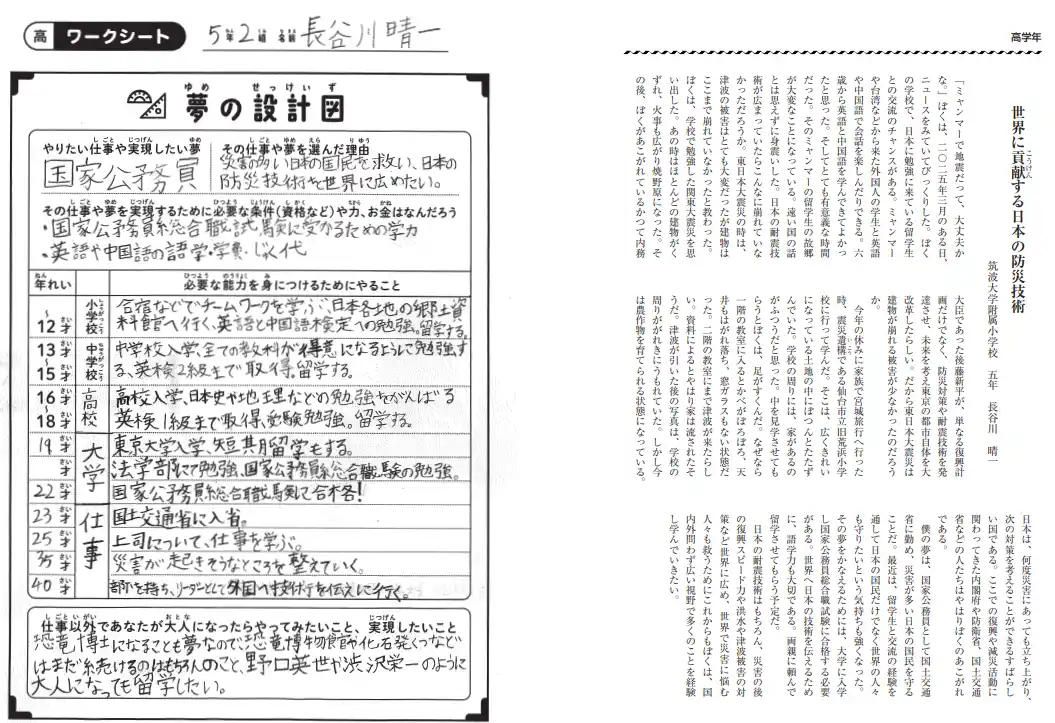 高 ワークシート 5年2組 名前 長谷川晴一
夢の設計図
やりたい仕事や実現したい夢
国家公務員
その仕事や夢を選んだ理由
災害の多い日本の国民を救い、日本の
防災技術を世界に広めたい。
その仕事や夢を実現するために必要な条件(資格など)や力、お金はなんだろう
・国家公務員総合職試験に受かるための学力
・英語や中国語の語学・学費・じゅく代
年れい 必要な能力を身につけるためにやること
〜12才 小学校 合宿などでチームワークを学ぶ、日本各地の郷土資
料館へ行く、英語と中国語検定への勉強。留学する。
13才〜15才 中学校 中学校入学、全ての教科が得意になるように勉強す
る、英検2級まで取得。留学する。
16才〜18才 高校 高校入学、日本史や地理などの勉強をがんばる
英検1級まで取得、受験勉強。留学する。
19才 大学 東京大学入学、短期留学もする。
才 法学部にて勉強、国家公務員総合職試験の勉強。
22才 国家公務員総合職試験に合格!
23才 仕事 国土交通省に入省。
25才 上司について、仕事を学ぶ。
35才 災害が起きそうなところを整えていく。
40才 部下を持ち、リーダーとして外国へ技術を伝えに行く。
仕事以外であなたが大人になったらやってみたいこと、実現したいこと
恐竜博士になることも夢なので、恐竜博物館や化石発くつなど
はまだ続けるのはもちろんのこと、野口英世や渋沢栄一のように
大人になっても留学したい。
高学年
世界に貢献する日本の防災技術
筑波大学附属小学校 五年 長谷川 晴一
「ミャンマーで地震だって、大丈夫か
な。」ぼくは、二〇二五年三月のある日、
ニュースをみていてびっくりした。ぼく
の学校で、日本に勉強に来ている留学生
との交流のチャンスがある。ミャンマー
や台湾などから来た外国人の学生と英語
や中国語で会話を楽しんだりできる。六
歳から英語と中国語を学んできてよかっ
たと思った。そしてとても有意義な時間
だった。そのミャンマーの留学生の故郷
が大変なことになっている。遠い国の話
とは思えずに身震いした。日本の耐震技
術が広まっていたらこんなに崩れていな
かっただろうか。東日本大震災の時は、
津波の被害はとても大変だったが建物は
ここまで崩れていなかったと教わった。
ぼくは、学校で勉強した関東大震災を思
い出した。あの時はほとんどの建物がく
ずれ、火事も広がり焼野原になった。そ
の後、ぼくがあこがれているかつて内務
大臣であった後藤新平が、単なる復興計
画だけでなく、防災対策や耐震技術を発
達させ、未来を考え東京の都市自体を大
改革したらしい。だから東日本大震災は
建物が崩れる被害が少なかったのだろう
か。
今年の休みに家族で宮城旅行へ行った
時、震災遺構である仙台市立旧荒浜小学
校に行って学んだ。そこは、広くきれい
になっている土地の中にぽつんとたたず
んでいた。学校の周りには、家があるの
がふつうだと思った。中を見学させても
らうとぼくは、足がすくんだ。なぜなら
一階の教室に入るとかべがぼろぼろ、天
井もはがれ落ち、窓ガラスもない状態だ
った。二階の教室にまで津波が来たらし
い。資料によるとやはり家は流されたそ
うだ。津波が引いた後の写真は、学校の
周りががれきにうもれていた。しかし今
は農作物を育てられる状態になっている。
日本は、何度災害にあっても立ち上がり、
次の対策を考えることができるすばらし
い国である。ここでの復興や減災活動に
関わってきた内閣府や防衛省、国土交通
省などの人たちはやはりぼくのあこがれ
である。
僕の夢は、国家公務員として国土交通
省に勤め、災害が多い日本の国民を守る
ことだ。最近は、留学生と交流の経験を
通して日本の国民だけでなく世界の人々
も守りたいという気持ちも強くなった。
その夢をかなえるためには、大学に入学
し国家公務員総合職試験に合格する必要
がある。世界へ日本の技術を伝えるため
に、語学力も大切である。両親に頼んで
留学させてもらう予定だ。
日本の耐震技術はもちろん、災害の後
の復興スピード力や洪水や津波被害の対
策など世界に広め、世界で災害に悩む
人々も救うためにこれからもぼくは、国
内外問わず広い視野で多くのことを経験
し学んでいきたい。